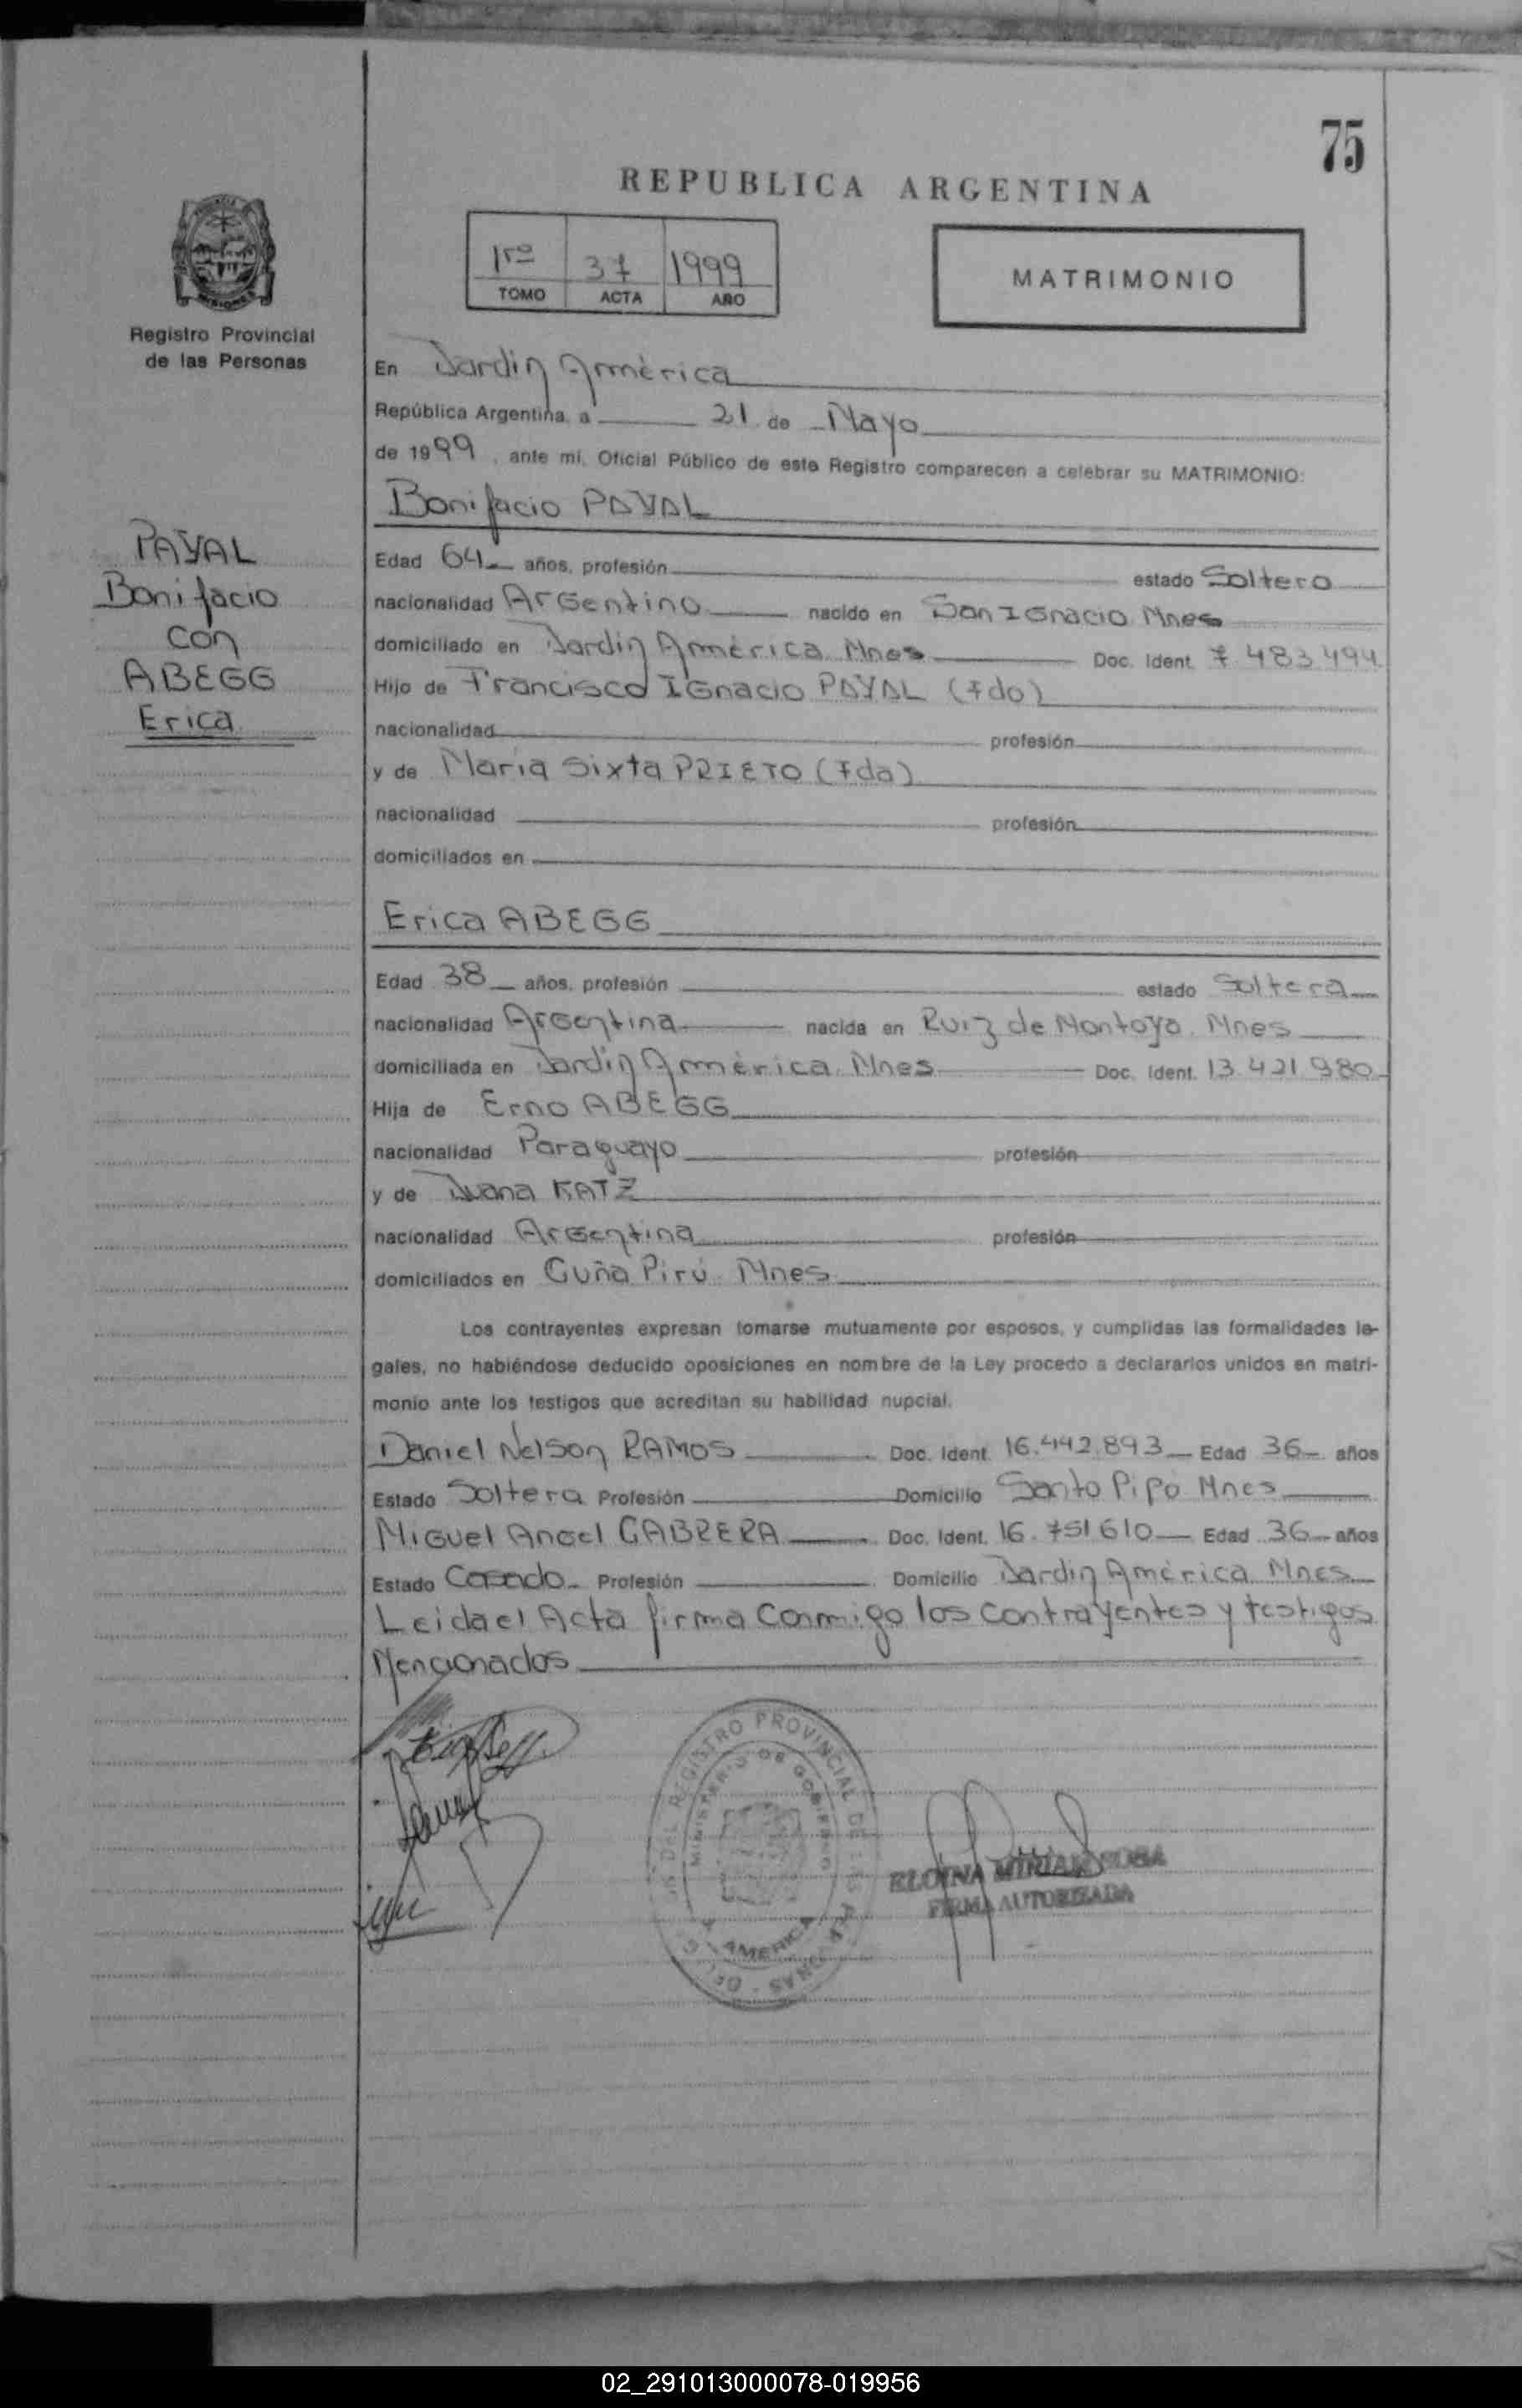 75
REPUBLICA ARGENTINA
1ro 37 1999
TOMO ACTA AÑO
MATRIMONIO
MISIONES
Registro Provincial
de las Personas
PAYAL
Bonifacio
con
ABEGG
Erica
En Jardin América
República Argentina, a 21 de Mayo
de 1999, ante mí, Oficial Público de este Registro comparecen a celebrar su MATRIMONIO:
Bonifacio PAYAL
Edad 64 años, profesión estado Soltero
nacionalidad Argentino nacido en San Ignacio Mnes
domiciliado en Jardin América Mnes Doc. Ident. 7.483.494
Hijo de Francisco Ignacio PAYAL (Fdo)
nacionalidad profesión
y de Maria Sixta PRIETO (Fda)
nacionalidad profesión
domiciliados en
Erica ABEGG
Edad 38 años, profesión estado Soltera
nacionalidad Argentina nacida en Ruiz de Montoya. Mnes
domiciliada en Jardin América. Mnes Doc. Ident. 13.421.980
Hija de Erno ABEGG
nacionalidad Paraguayo profesión
y de Juana KATZ
nacionalidad Argentina profesión
domiciliados en Cuña Pirú Mnes
Los contrayentes expresan tomarse mutuamente por esposos, y cumplidas las formalidades le-
gales, no habiéndose deducido oposiciones en nombre de la Ley procedo a declararlos unidos en matri-
monio ante los testigos que acreditan su habilidad nupcial.
Daniel Nelson RAMOS Doc. Ident. 16.442.893 Edad 36 años
Estado Soltera Profesión Domicilio Santo Pipo Mnes
Miguel Angel CABRERA Doc. Ident. 16.751.610 Edad 36 años
Estado Casado Profesión Domicilio Jardin América Mnes
Leida el Acta firma conmigo los contrayentes y testigos
Mencionados
REGISTRO PROVINCIAL DE LAS PERSONAS
MINISTERIO DE GOBIERNO
AMERICA
ELOINA MIRIAM SOSA
FIRMA AUTORIZADA
02_291013000078-019956